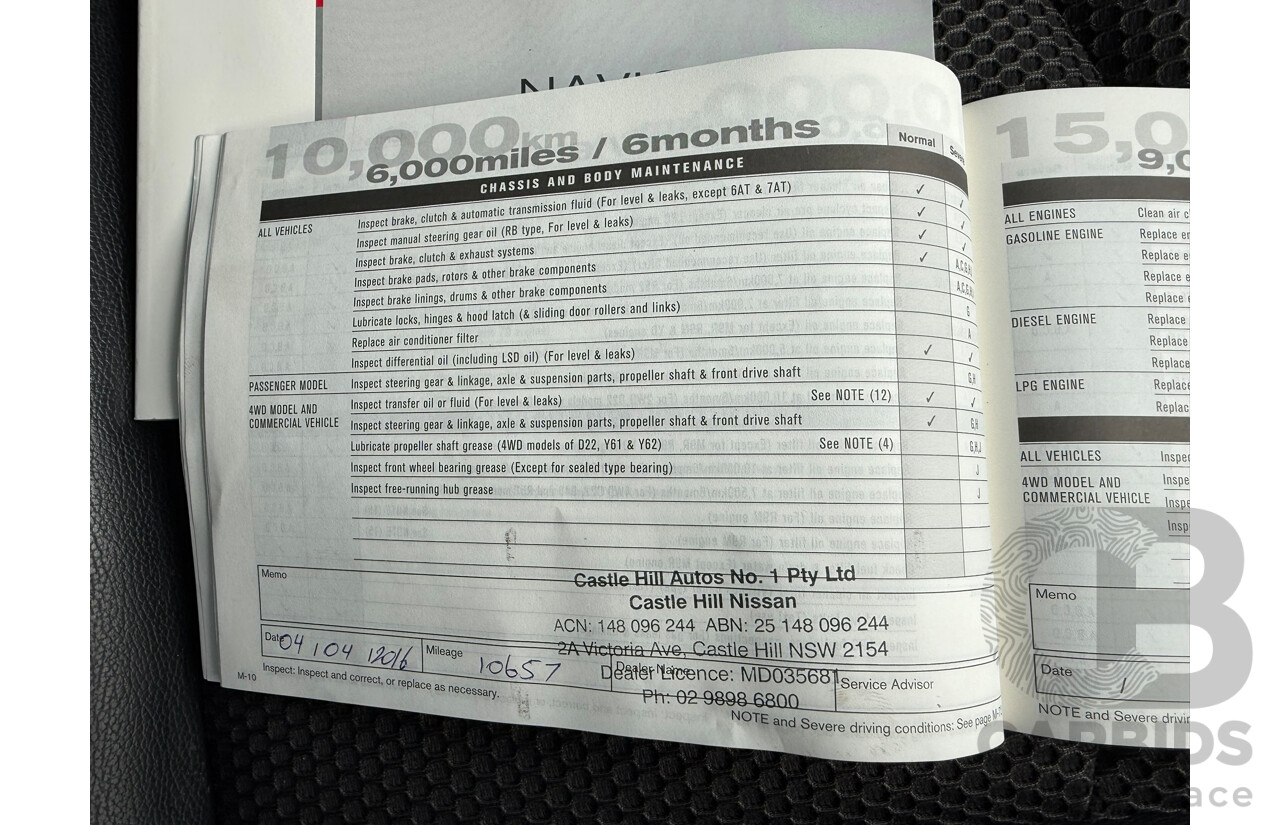 10,000km
6,000miles / 6months
Normal
CHASSIS AND BODY MAINTENANCE
ALL VEHICLES
Inspect brake, clutch & automatic transmission fluid (For level & leaks, except 6AT & 7AT) ✓ ✓
Inspect manual steering gear oil (RB type, For level & leaks) ✓ ✓
Inspect brake, clutch & exhaust systems ✓ ✓
Inspect brake pads, rotors & other brake components ✓
Inspect brake linings, drums & other brake components
Lubricate locks, hinges & hood latch (& sliding door rollers and links) G
Replace air conditioner filter A
Inspect differential oil (including LSD oil) (For level & leaks) ✓ ✓
PASSENGER MODEL Inspect steering gear & linkage, axle & suspension parts, propeller shaft & front drive shaft G,H
4WD MODEL AND COMMERCIAL VEHICLE
Inspect transfer oil or fluid (For level & leaks) See NOTE (12) ✓ ✓
Inspect steering gear & linkage, axle & suspension parts, propeller shaft & front drive shaft ✓ G,H
Lubricate propeller shaft grease (4WD models of D22, Y61 & Y62) See NOTE (4) G,H,J
Inspect front wheel bearing grease (Except for sealed type bearing) J
Inspect free-running hub grease J
Memo
Castle Hill Autos No. 1 Pty Ltd
Castle Hill Nissan
ACN: 148 096 244 ABN: 25 148 096 244
2A Victoria Ave, Castle Hill NSW 2154
Dealer Licence: MD035681
Ph: 02 9898 6800
Date 04 / 04 / 2016
Mileage 10657
Dealer Name
Service Advisor
M-10
Inspect: Inspect and correct, or replace as necessary.
NOTE and Severe driving conditions: See page
15,0
9,0
ALL ENGINES Clean air c
GASOLINE ENGINE Replace e
Replace e
Replace e
Replace e
DIESEL ENGINE Replace
Replace
Replace
LPG ENGINE Replace
Replac
ALL VEHICLES Inspe
4WD MODEL AND COMMERCIAL VEHICLE
Inspe
Insp
Insp
Memo
Date /
NOTE and Severe drivin
CARBIDS
ace